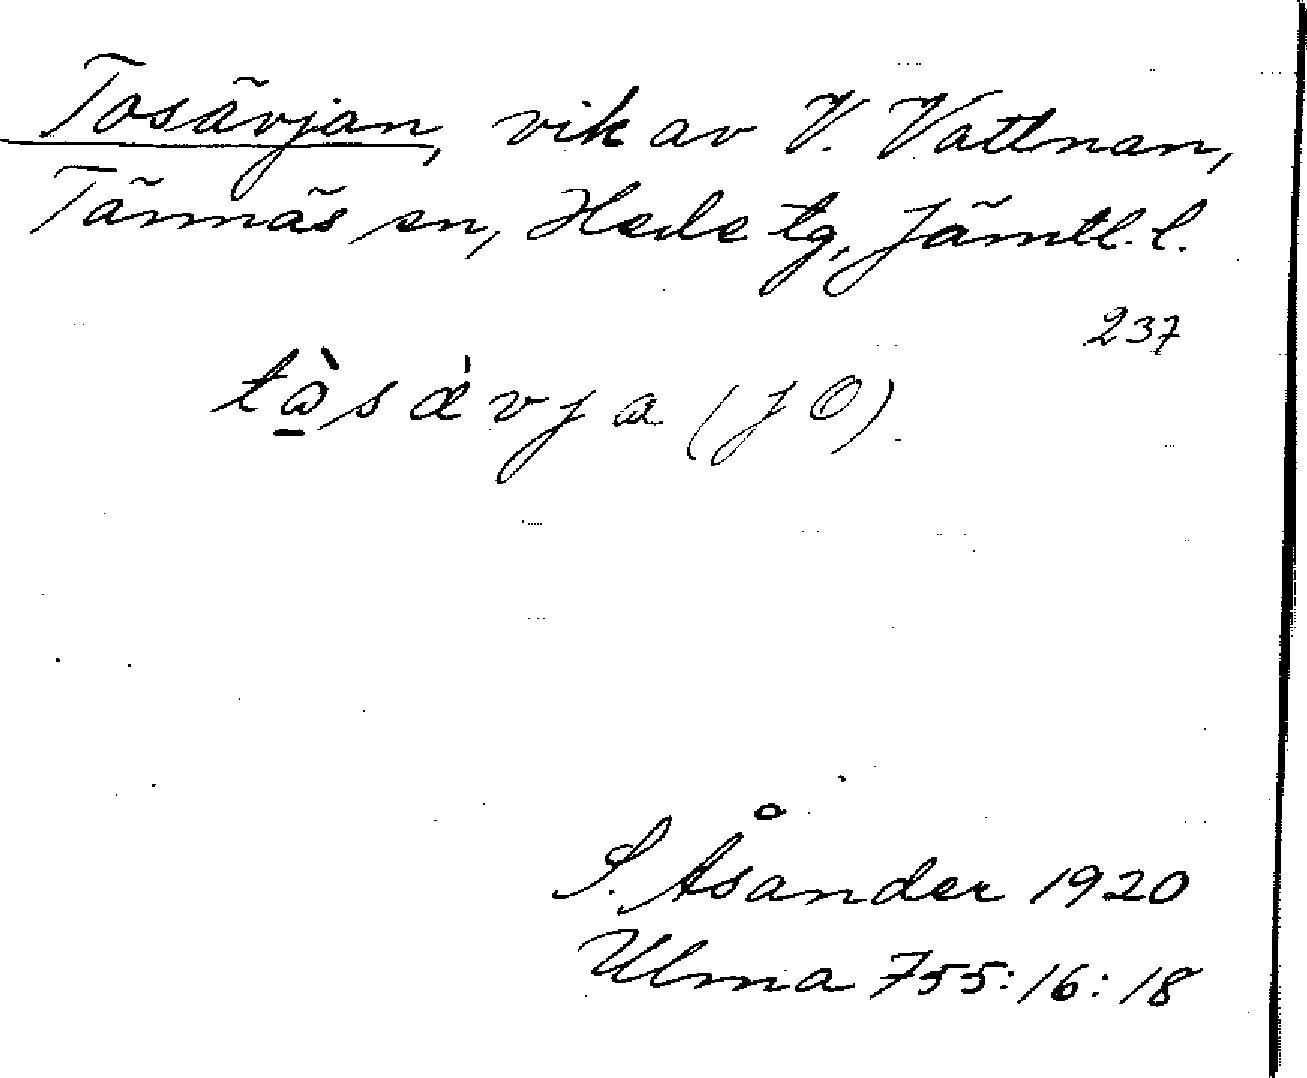 Tosävjan, vik av V. Vattnan,
Tännäs sn, Hede tg, Jämtl. l.
237
tὼsǽvja (JÖ)
S. Åsander 1920
Ulma 755:16:18